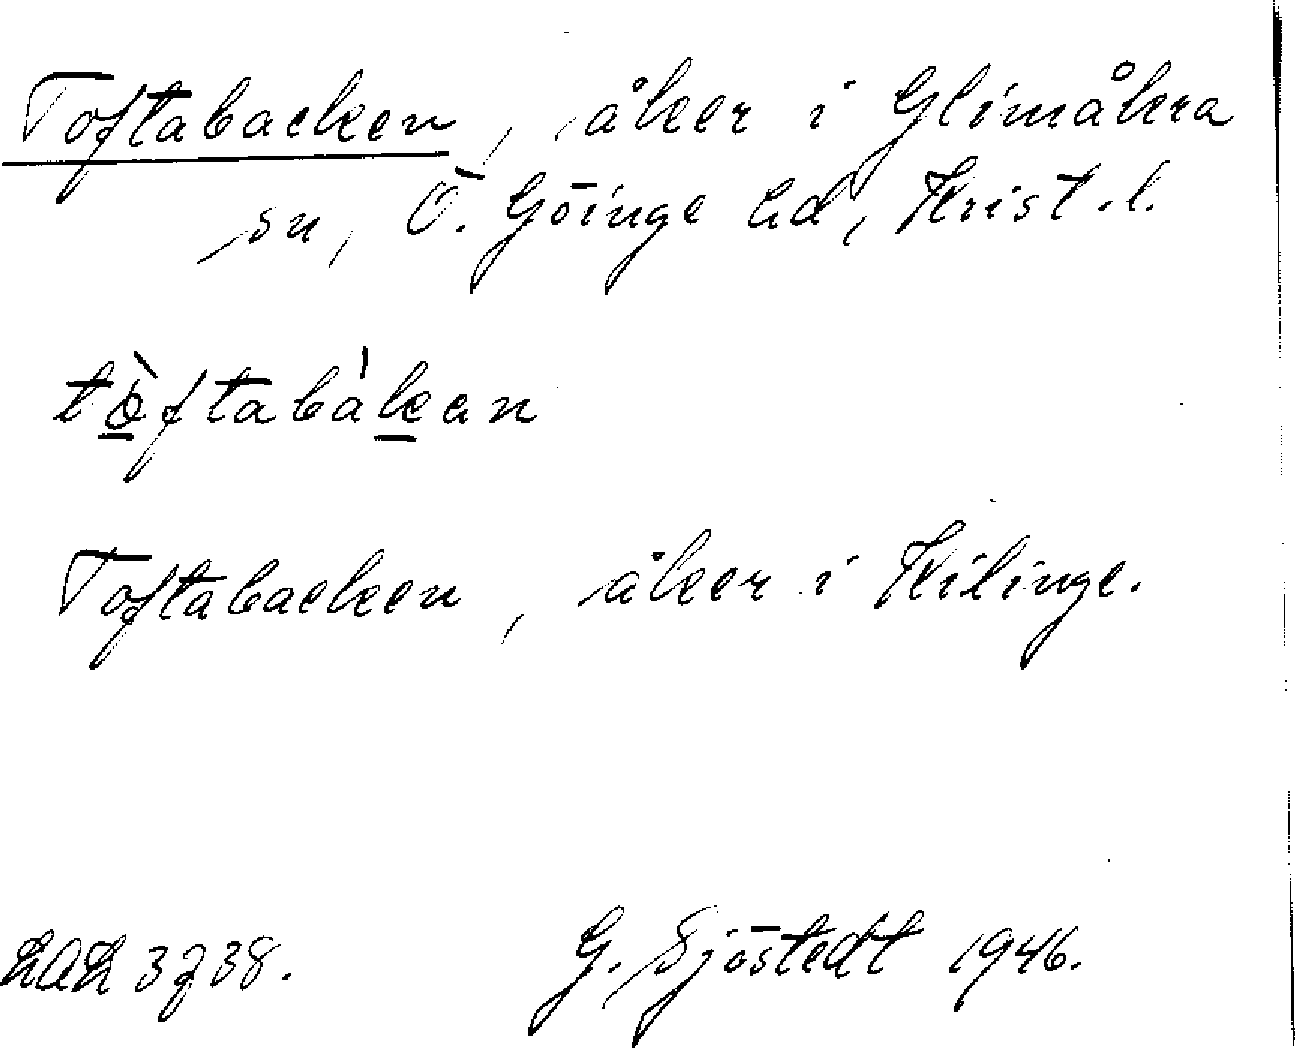 Toftabacken, åker i Glimåkra
sn, Ö. Göinge hd, Krist.l.
tòftabàkan
Toftabacken, åker i Kilinge.
LAL 3738.
G. Sjöstedt 1946.